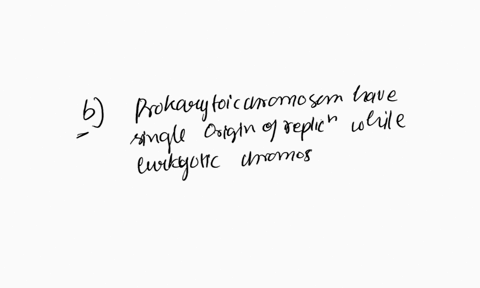 b) Prokarytoic chromosom have
single Origin of replicⁿ while
eurkyotic chromos